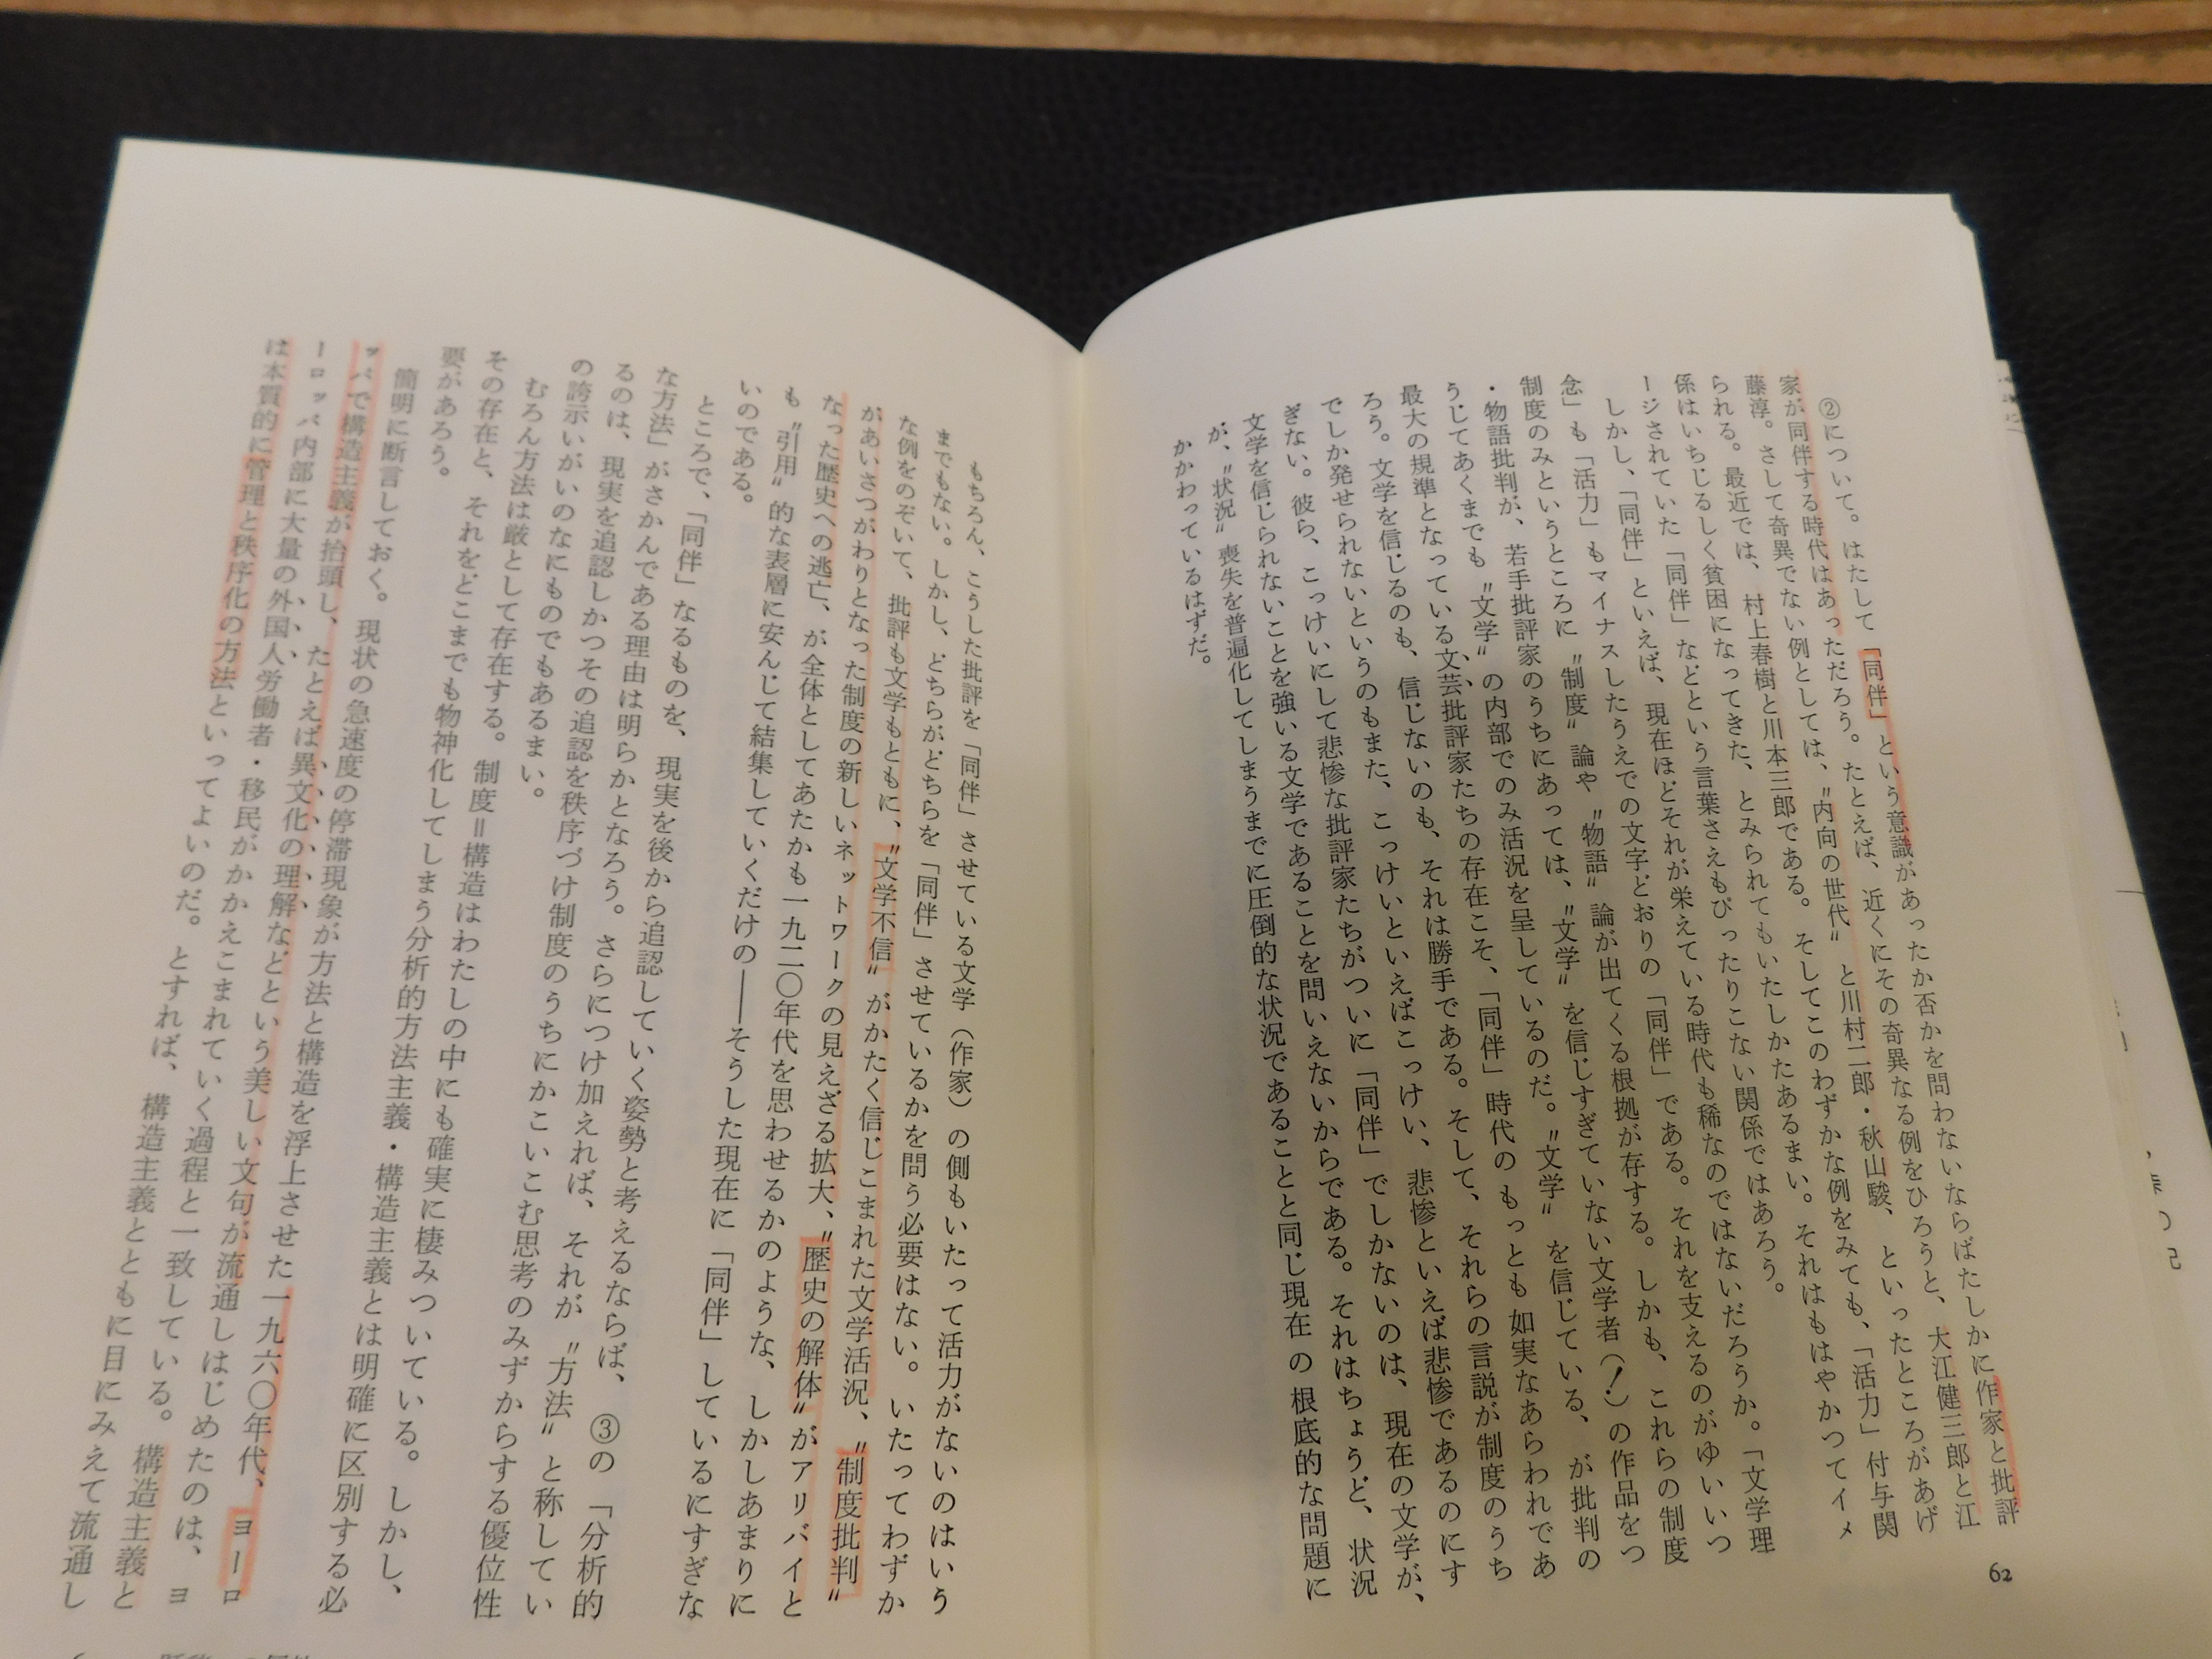 ②について。はたして「同伴」という意識があったか否かを問わないならばたしかに作家と批評
家が同伴する時代はあっただろう。たとえば、近くにその奇異なる例をひろうと、大江健三郎と江
藤淳。さして奇異でない例としては、〝内向の世代〟と川村二郎・秋山駿、といったところがあげ
られる。最近では、村上春樹と川本三郎である。そしてこのわずかな例をみても、「活力」付与関
係はいちじるしく貧困になってきた、とみられてもいたしかたあるまい。それはもはやかつてイメ
ージされていた「同伴」などという言葉さえもぴったりこない関係ではあろう。
しかし、「同伴」といえば、現在ほどそれが栄えている時代も稀なのではないだろうか。「文学理
念」も「活力」もマイナスしたうえでの文字どおりの「同伴」である。それを支えるのがゆいいつ
制度のみというところに〝制度〟論や〝物語〟論が出てくる根拠が存する。しかも、これらの制度
・物語批判が、若手批評家のうちにあっては、〝文学〟を信じすぎていない文学者(！)の作品をつ
うじてあくまでも〝文学〟の内部でのみ活況を呈しているのだ。〝文学〟を信じている、が批判の
最大の規準となっている文芸批評家たちの存在こそ、「同伴」時代のもっとも如実なあらわれであ
ろう。文学を信じるのも、信じないのも、それは勝手である。そして、それらの言説が制度のうち
でしか発せられないというのもまた、こっけいといえばこっけい、悲惨といえば悲惨であるのにす
ぎない。彼ら、こっけいにして悲惨な批評家たちがついに「同伴」でしかないのは、現在の文学が、
文学を信じられないことを強いる文学であることを問いえないからである。それはちょうど、状況
が、〝状況〟喪失を普遍化してしまうまでに圧倒的な状況であることと同じ現在の根底的な問題に
かかわっているはずだ。
62
もちろん、こうした批評を「同伴」させている文学（作家）の側もいたって活力がないのはいう
までもない。しかし、どちらがどちらを「同伴」させているかを問う必要はない。いたってわずか
な例をのぞいて、批評も文学もともに、〝文学不信〟がかたく信じこまれた文学活況、〝制度批判〟
があいさつがわりとなった制度の新しいネットワークの見えざる拡大、〝歴史の解体〟がアリバイと
なった歴史への逃亡、が全体としてあたかも一九二〇年代を思わせるかのような、しかしあまりに
も〝引用〟的な表層に安んじて結集していくだけの――そうした現在に「同伴」しているにすぎな
いのである。
ところで、「同伴」なるものを、現実を後から追認していく姿勢と考えるならば、③の「分析的
な方法」がさかんである理由は明らかとなろう。さらにつけ加えれば、それが〝方法〟と称してい
るのは、現実を追認しかつその追認を秩序づけ制度のうちにかこいこむ思考のみずからする優位性
の誇示いがいのなにものでもあるまい。
むろん方法は厳として存在する。制度＝構造はわたしの中にも確実に棲みついている。しかし、
その存在と、それをどこまでも物神化してしまう分析的方法主義・構造主義とは明確に区別する必
要があろう。
簡明に断言しておく。現状の急速度の停滞現象が方法と構造を浮上させた一九六〇年代、ヨーロ
ッパで構造主義が抬頭し、たとえば異文化の理解などという美しい文句が流通しはじめたのは、ヨ
ーロッパ内部に大量の外国人労働者・移民がかかえこまれていく過程と一致している。構造主義と
は本質的に管理と秩序化の方法といってよいのだ。とすれば、構造主義とともに目にみえて流通し